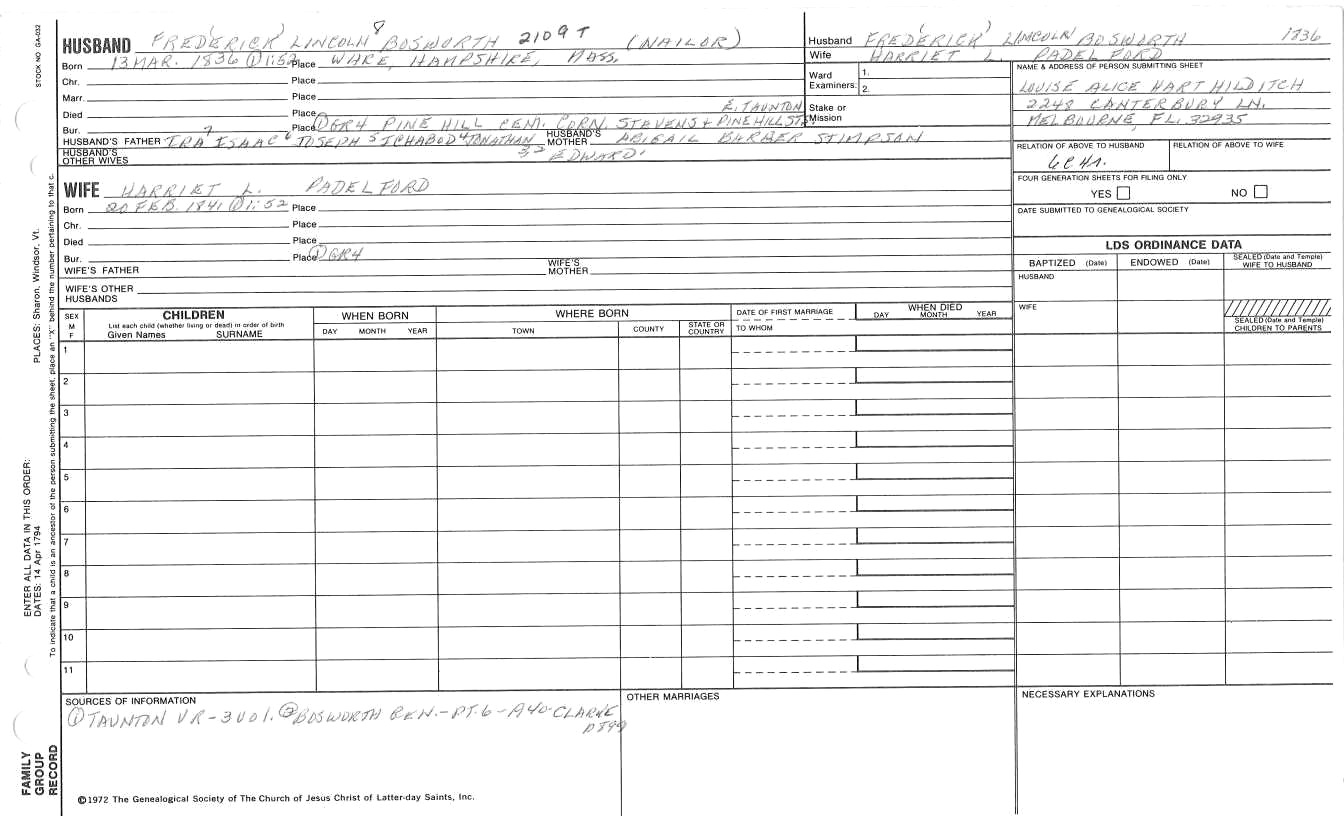 HUSBAND FRED(ERICK) LINCOLN 8 BOSWORTH 2109 T (NAILOR)
Born 13 MAR. 1836 ① 1:52 Place WARE, HAMPSHIRE, MASS.
Chr. Place
Marr. Place
Died Place E. TAUNTON
Bur. Place ① GR4 PINE HILL CEM. CORN. STEVENS + PINEHILL STS.
HUSBAND'S FATHER IRA 7 ISAAC 6 JOSEPH 5 ICHABOD 4 JONATHAN 3 2 EDWARD 1 HUSBAND'S MOTHER ABIGAIL BARBER STIMPSON
HUSBAND'S OTHER WIVES
WIFE HARRIET L. PADELFORD
Born 20 FEB. 1841 ① 1:52 Place
Chr. Place
Died Place
Bur. Place ① GR4
WIFE'S FATHER WIFE'S MOTHER
WIFE'S OTHER HUSBANDS
Husband FRED(ERICK) LINCOLN BOSWORTH 1836
Wife HARRIET L. PADELFORD
Ward Examiners: 1. 2.
Stake or Mission
NAME & ADDRESS OF PERSON SUBMITTING SHEET
LOUISE ALICE HART HILDITCH
2248 CANTERBURY LN.
MELBOURNE, FL. 32935
RELATION OF ABOVE TO HUSBAND RELATION OF ABOVE TO WIFE
6C4r.
FOUR GENERATION SHEETS FOR FILING ONLY
YES NO
DATE SUBMITTED TO GENEALOGICAL SOCIETY
LDS ORDINANCE DATA
BAPTIZED (Date) ENDOWED (Date) SEALED (Date and Temple) WIFE TO HUSBAND
HUSBAND
WIFE
SEALED (Date and Temple) CHILDREN TO PARENTS
SEX M F
CHILDREN
List each child (whether living or dead) in order of birth
Given Names SURNAME
WHEN BORN
DAY MONTH YEAR
WHERE BORN
TOWN COUNTY STATE OR COUNTRY
DATE OF FIRST MARRIAGE
TO WHOM
WHEN DIED
DAY MONTH YEAR
1
2
3
4
5
6
7
8
9
10
11
SOURCES OF INFORMATION
① TAUNTON VR - 3 Vol. ② BOSWORTH GEN. - PT. 6 - A40 - CLARKE
P899
OTHER MARRIAGES
NECESSARY EXPLANATIONS
©1972 The Genealogical Society of The Church of Jesus Christ of Latter-day Saints, Inc.
STOCK NO GA-032
PLACES: Sharon, Windsor, Vt.
ENTER ALL DATA IN THIS ORDER:
DATES: 14 Apr 1794
To indicate that a child is an ancestor of the person submitting the sheet, place an "X" behind the number pertaining to that c.
FAMILY GROUP RECORD